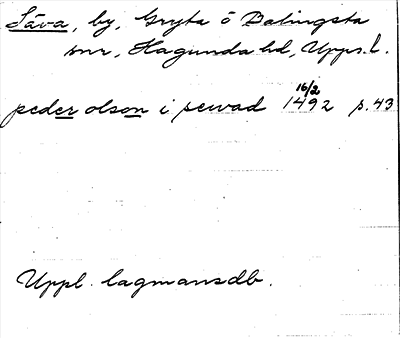 Säva, by, Gryta o Balingsta
snr, Hagunda hd, Upps. l.
peder olson i sewad 16/2 1492 s. 43
Uppl. lagmansdb.